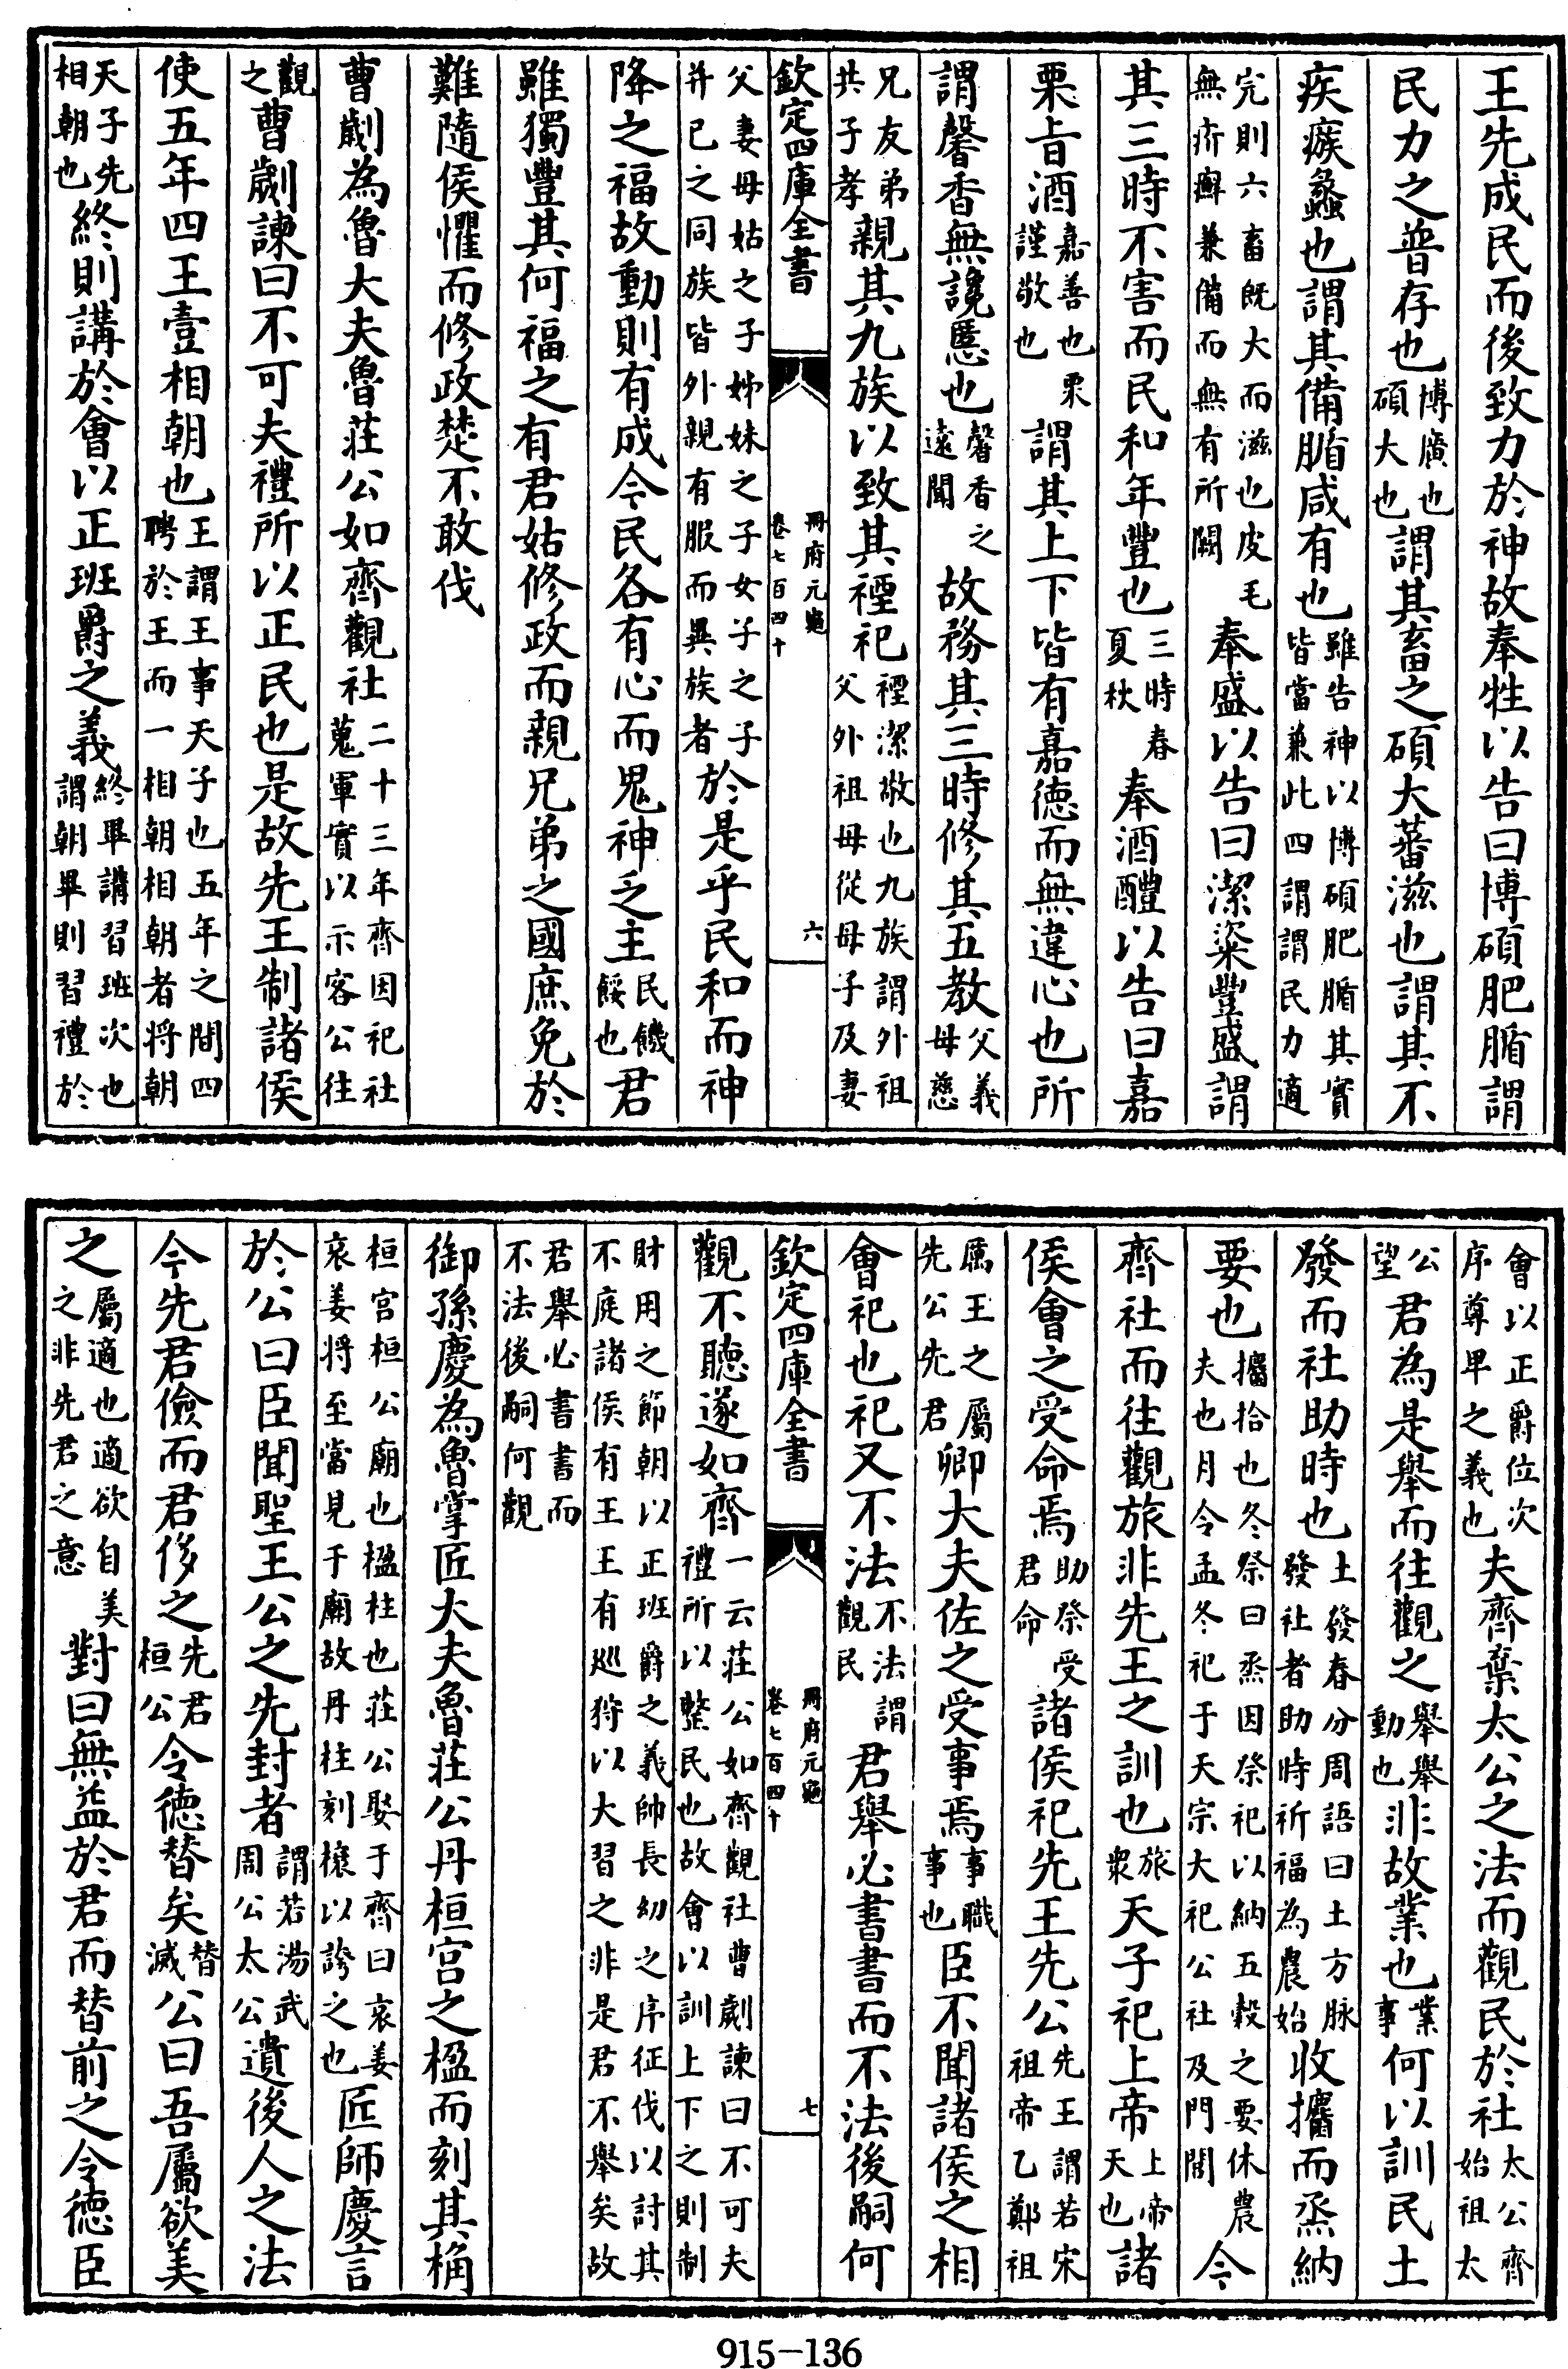 王先成民而後致力於神故奉牲以告曰博碩肥腯謂
民力之普存也博廣也碩大也謂其畜之碩大蕃滋也謂其不
疾瘯蠡也謂其備腯咸有也雖告神以博碩肥腯其實皆當兼此四謂謂民力適
完則六畜既大而滋也皮毛無疥癬兼備而無有所闕奉盛以告曰潔粢豐盛謂
其三時不害而民和年豐也三時春夏秋奉酒醴以告曰嘉
栗旨酒嘉善也栗謹敬也謂其上下皆有嘉德而無違心也所
謂馨香無讒慝也馨香之遠聞故務其三時修其五教父義母慈
兄友弟共子孝親其九族以致其禋祀禋潔敬也九族謂外祖父外祖母從母子及妻
欽定四庫全書 冊府元龜卷七百四十 六
父妻母姑之子姊妹之子女子之子并已之同族皆外親有服而異族者於是乎民和而神
降之福故動則有成今民各有心而鬼神乏主民饑餒也君
雖獨豐其何福之有君姑修政而親兄弟之國庶免於
難隨侯懼而修政楚不敢伐
曹劌為魯大夫魯莊公如齊觀社二十三年齊因祀社蒐軍實以示客公往
觀之曹劌諫曰不可夫禮所以正民也是故先王制諸侯
使五年四王壹相朝也王謂王事天子也五年之間四聘於王而一相朝相朝者将朝
天子先相朝也終則講於會以正班爵之義終畢講習班次也謂朝畢則習禮於
會以正爵位次序尊卑之義也夫齊棄太公之法而觀民於社太公齊始祖太
公望君為是舉而往觀之舉舉動也非故業也業事何以訓民土
發而社助時也土發春分周語曰土方脉發社者助時祈福為農始收攟而烝納
要也攟拾也冬祭曰烝因祭祀以納五穀之要休農夫也月令孟冬祀于天宗大祀公社及門閭今
齊社而往觀旅非先王之訓也旅衆天子祀上帝上帝天也諸
侯會之受命焉助祭受君命諸侯祀先王先公先王謂若宋祖帝乙鄭祖
厲王之屬先公先君卿大夫佐之受事焉事職事也臣不聞諸侯之相
會祀也祀又不法不法謂觀民君舉必書書而不法後嗣何
欽定四庫全書 冊府元龜卷七百四十 七
觀不聽遂如齊一云莊公如齊觀社曹劌諫曰不可夫禮所以整民也故會以訓上下之則制
財用之節朝以正班爵之義帥長幼之序征伐以討其不庭諸侯有王王有巡狩以大習之非是君不舉矣故
君舉必書書而不法後嗣何觀
御孫慶為魯掌匠大夫魯莊公丹桓宮之楹而刻其桷
桓宮桓公廟也楹柱也莊公娶于齊曰哀姜哀姜將至當見于廟故丹柱刻榱以誇之也匠師慶言
於公曰臣聞聖王公之先封者謂若湯武周公太公遺後人之法
今先君儉而君侈之先君桓公令德替矣替滅公曰吾屬欲美
之屬適也適欲自美之非先君之意對曰無益於君而替前之令德臣
915-136